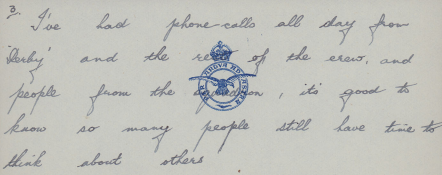 3.
I've had phone calls all day from
'Derby' and the rest of the crew, and
people from the squadron, it's good to
know so many people still have time to
think about others
PER ARDUA AD ASTRA